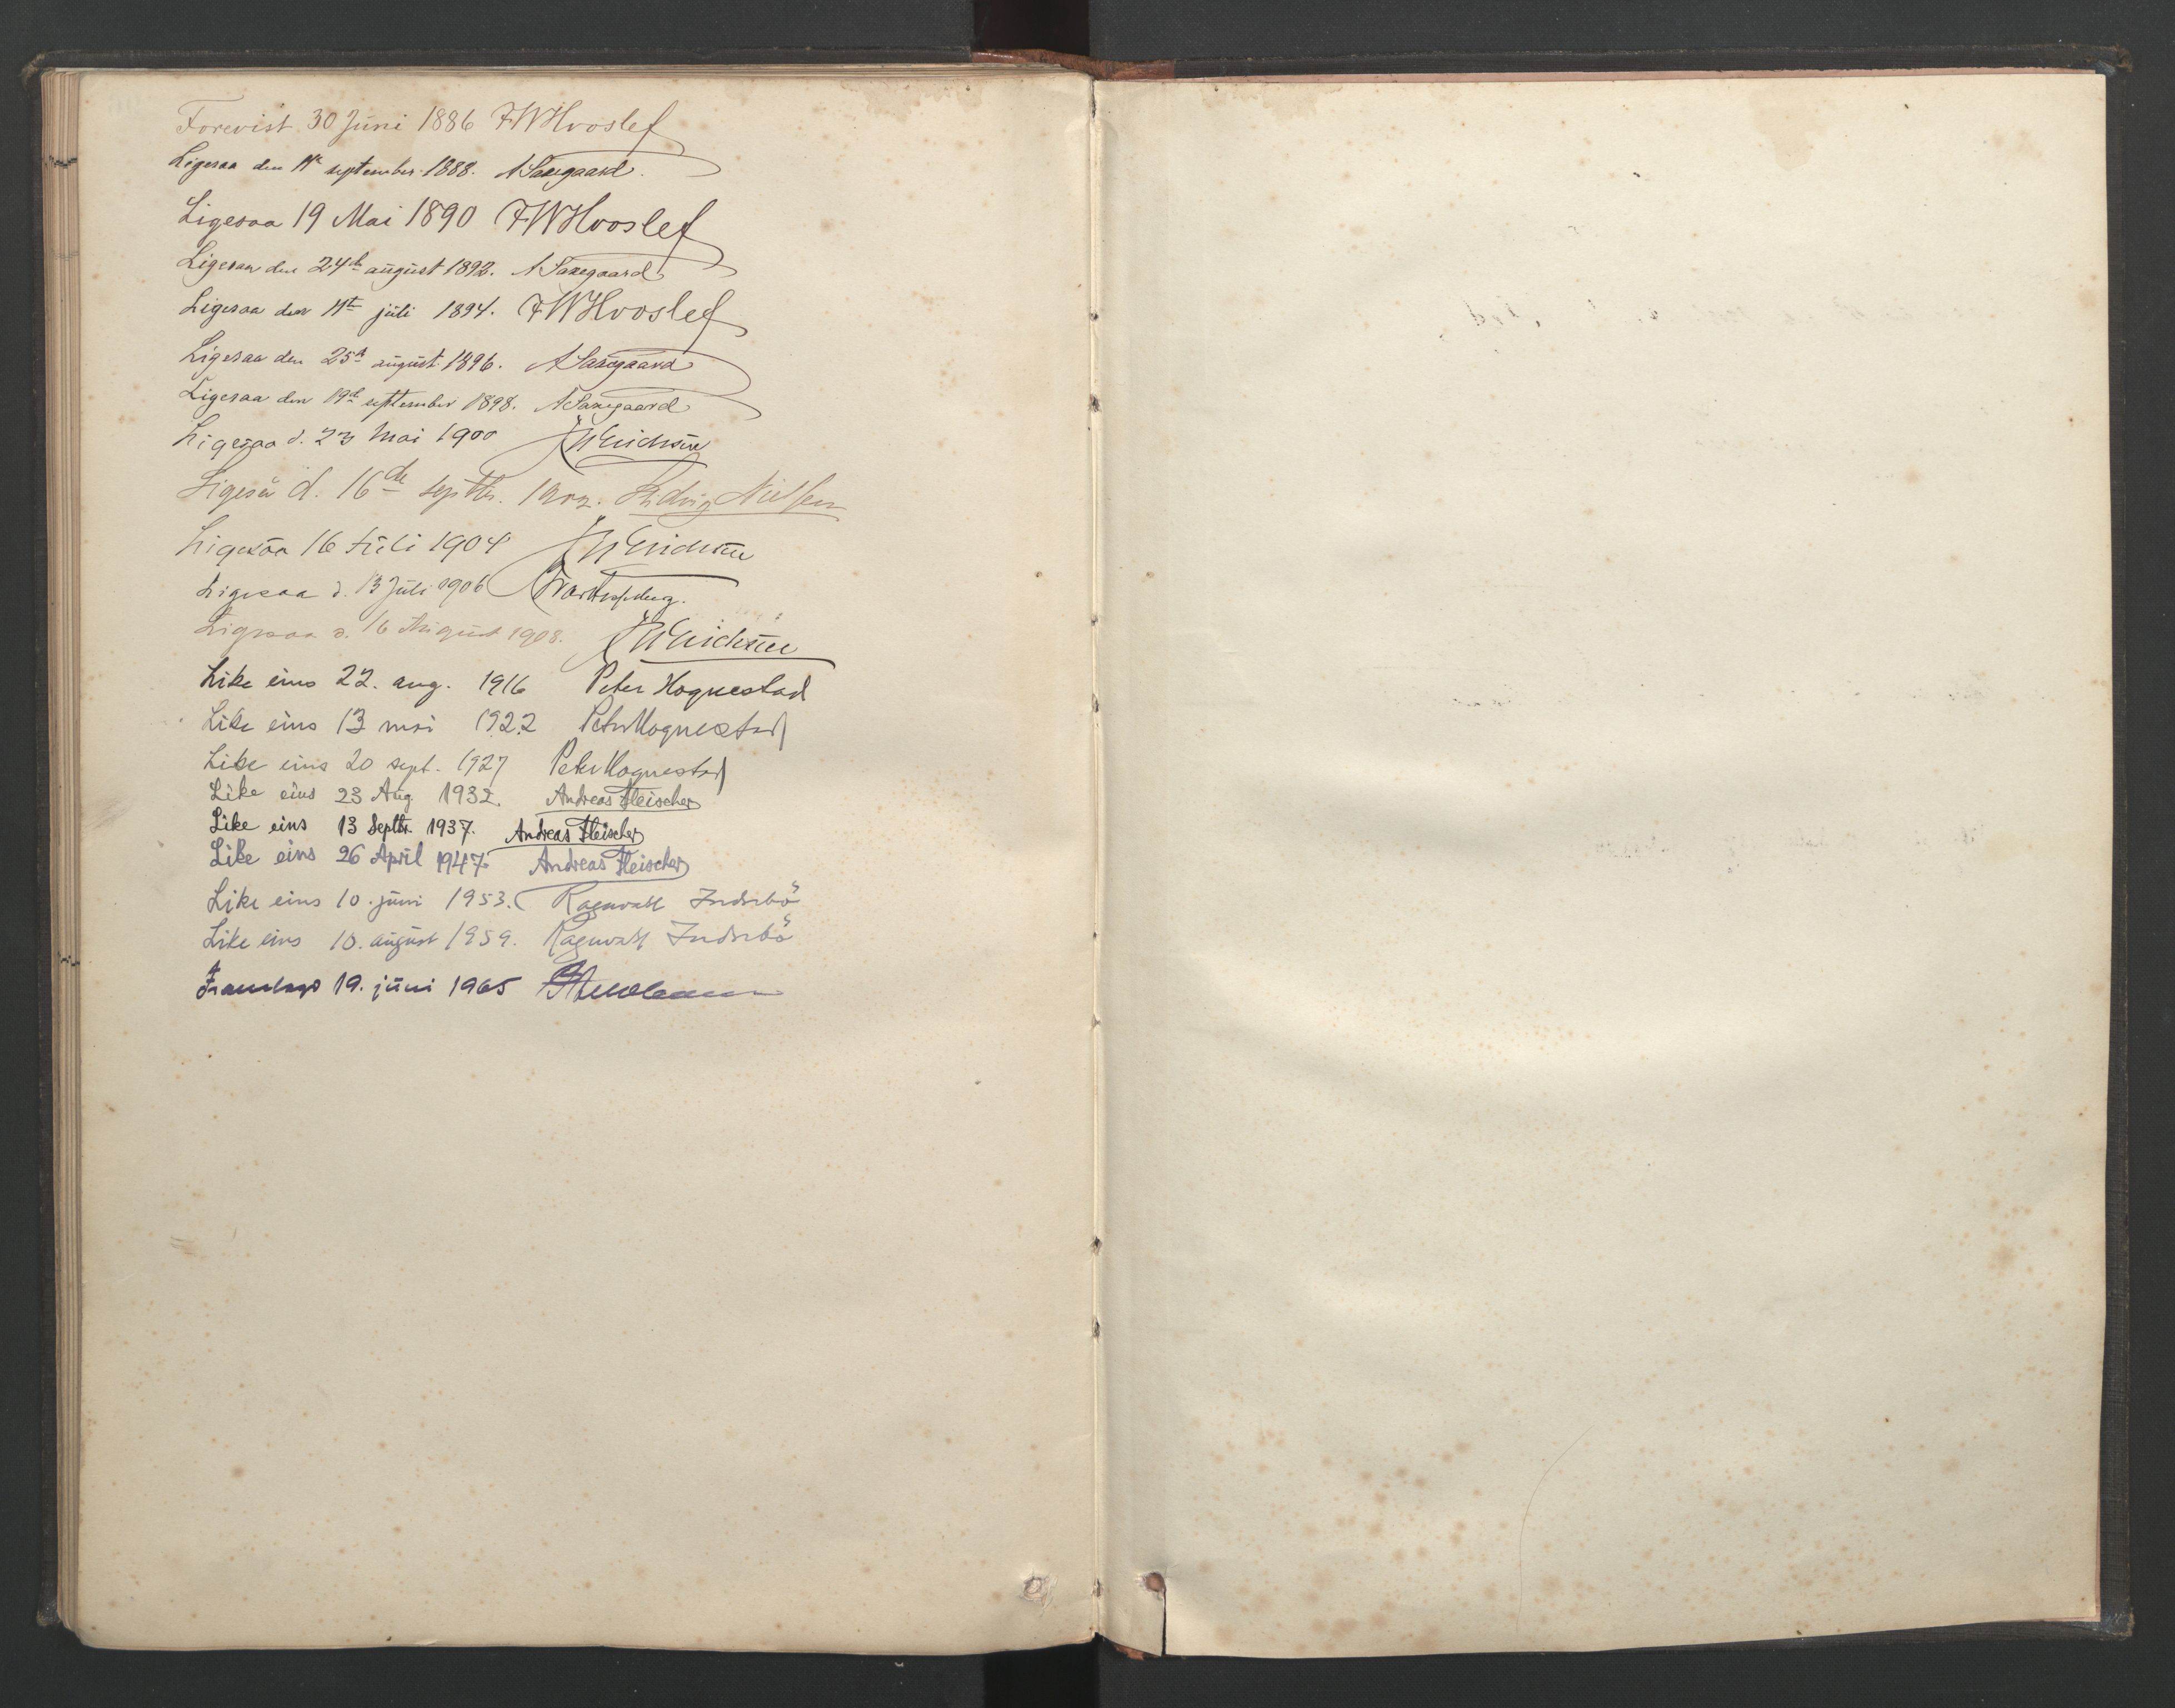 Forevist 30 Juni 1886 FWHvoslef
Ligesaa den 11te september 1888. ASaxegaard.
Ligesaa 19 Mai 1890 FWHvoslef
Ligesaa den 24de august 1892. ASaxegaard
Ligesaa den 11te juli 1894. FWHvoslef
Ligesaa den 25de august 1896. ASaxegaard
Ligesaa den 19de september 1898. ASaxegaard
Ligesaa d. 23 Mai 1900
Ligesaa d. 16de septbr. 1902. Ludvig Nielsen
Ligesaa 16 Juli 1904
Ligesaa d. 13 Juli 1906
Ligesaa d. 16 August 1908.
Like eins 22. aug. 1916 Peter Hognestad
Like eins 13 mai 1922 Peter Hognestad
Like eins 20 sept. 1927 Peter Hognestad
Like eins 23 Aug 1932. Andreas Fleischer
Like eins 13 Septbr. 1937. Andreas Fleischer
Like eins 26 April 1947. Andreas Fleischer
Like eins 10. juni 1953. Ragnvald Indrebö
Like eins 10. august 1959. Ragnvald Indrebö
Framlagd 19. juni 1965